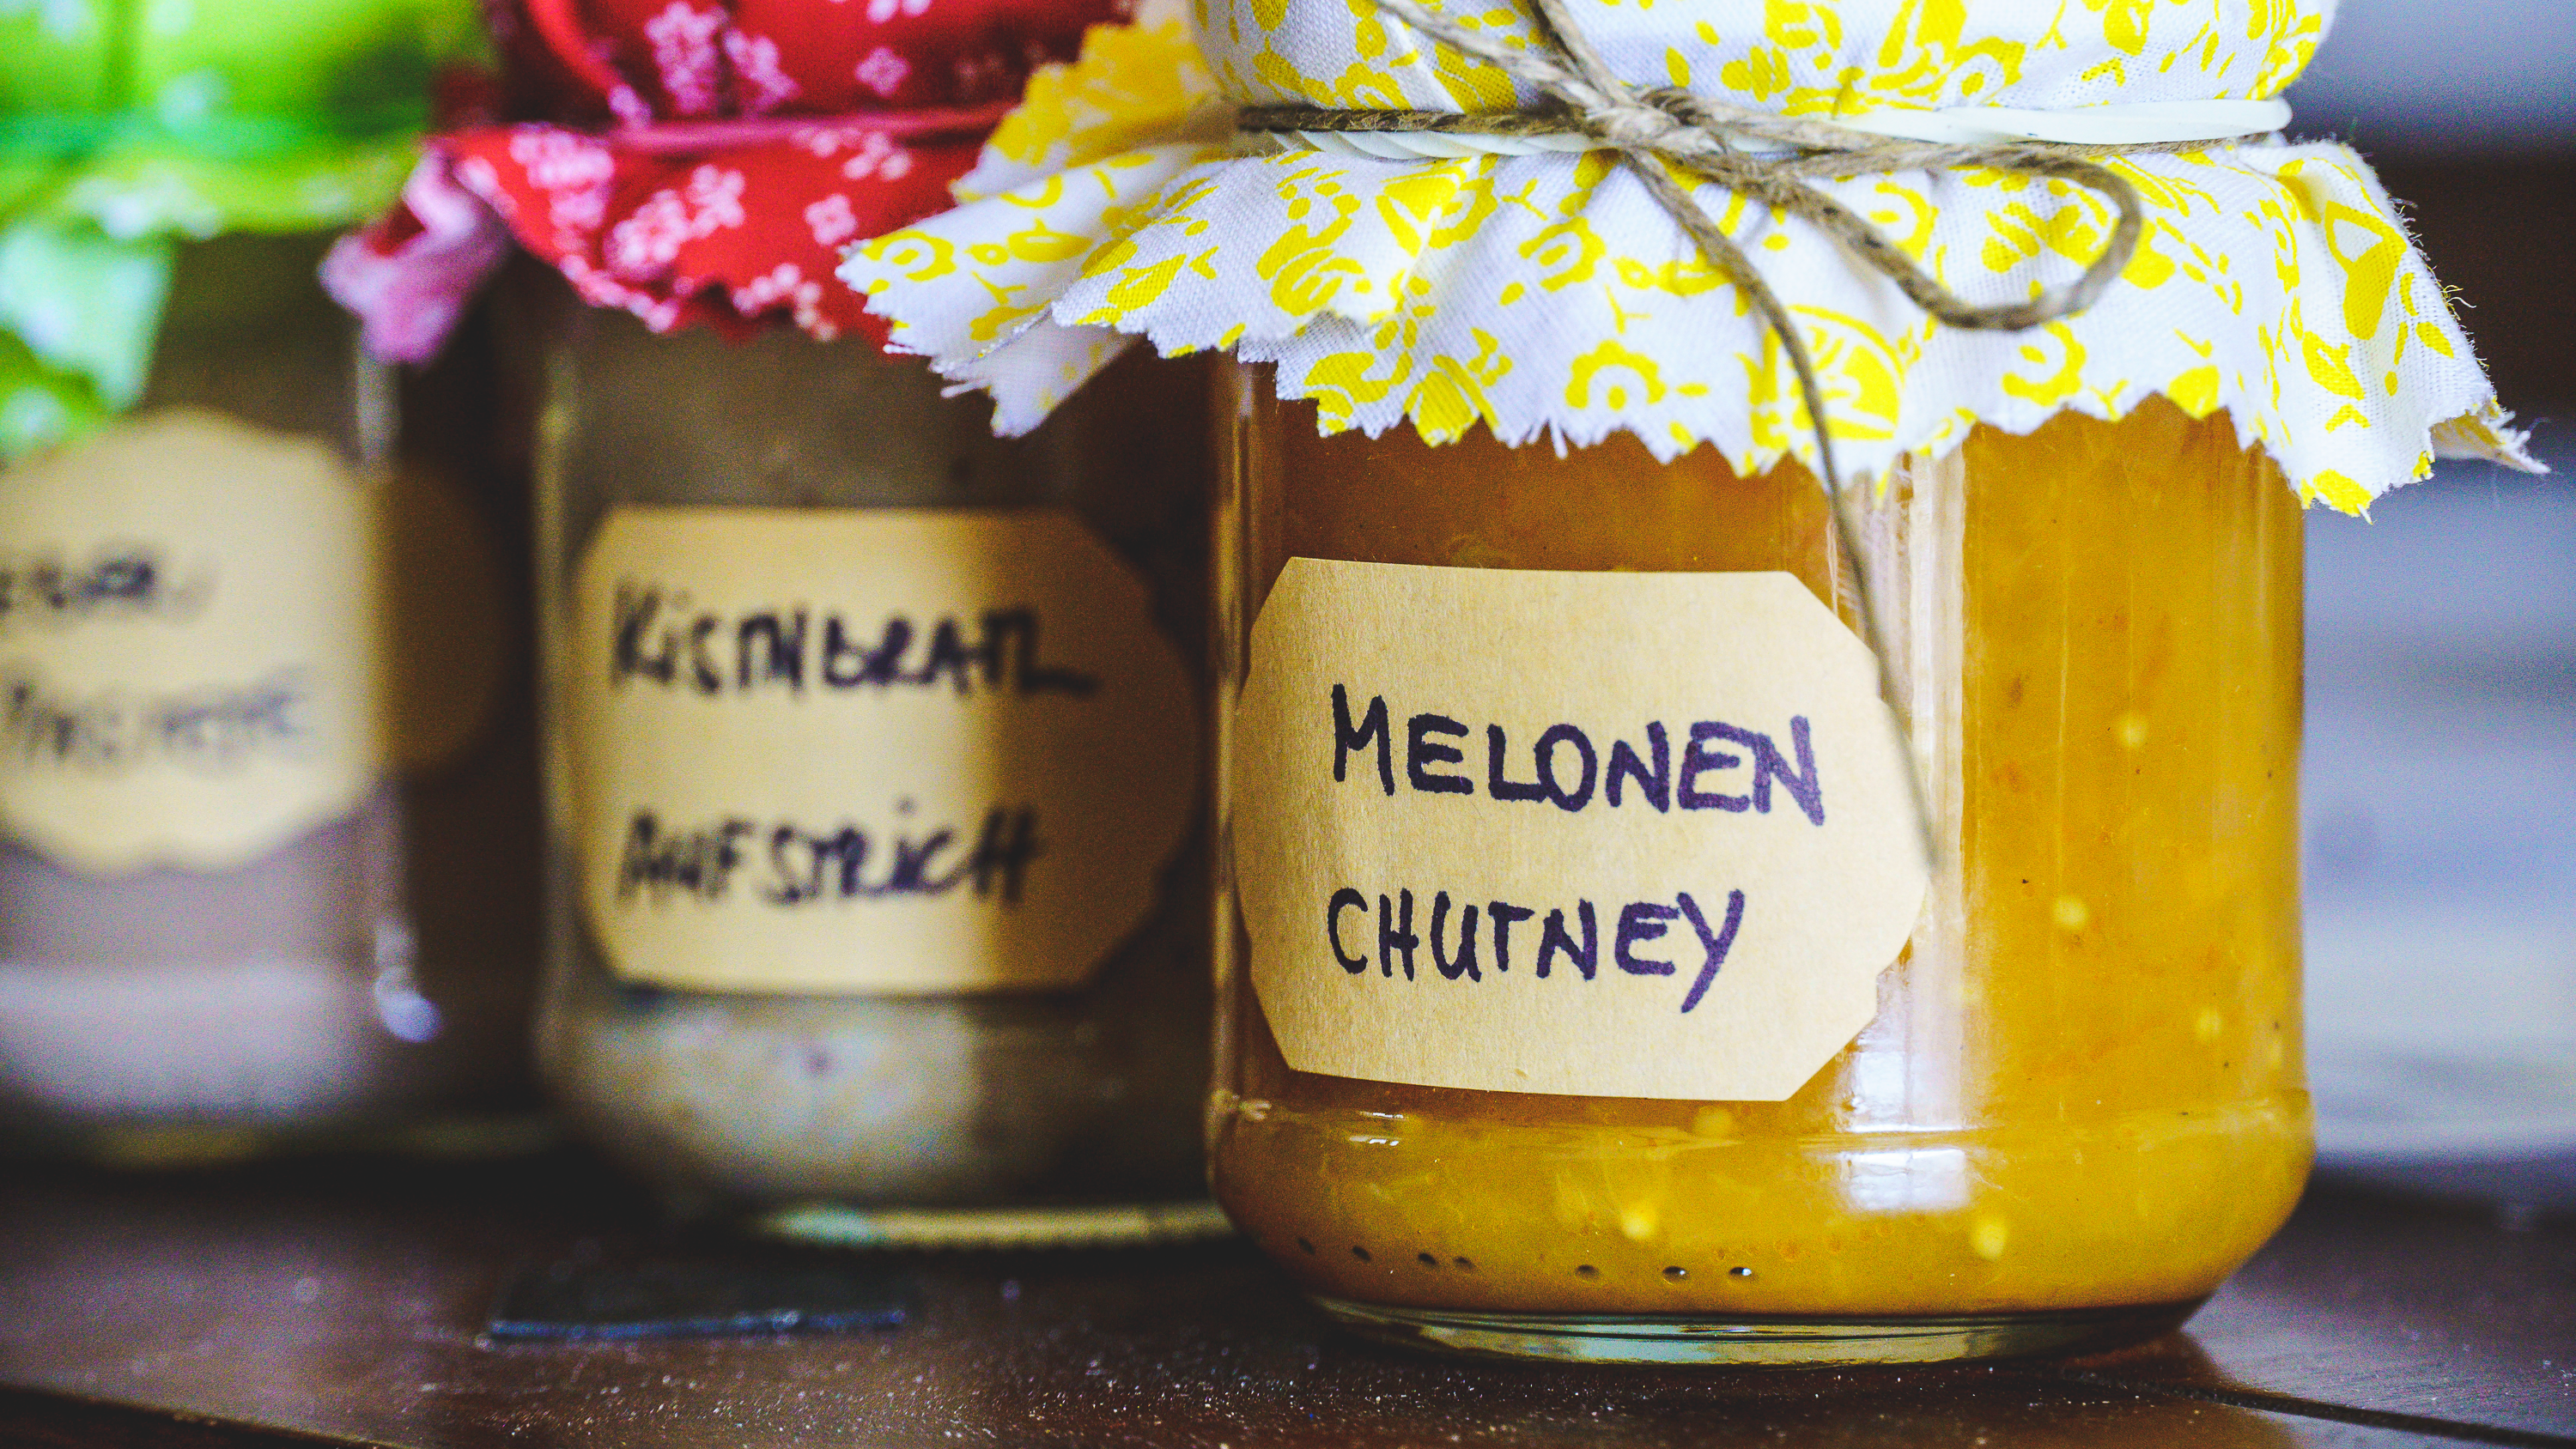 KiSTNbRATL
AUFSTRiCH
MELONEN
CHUTNEY